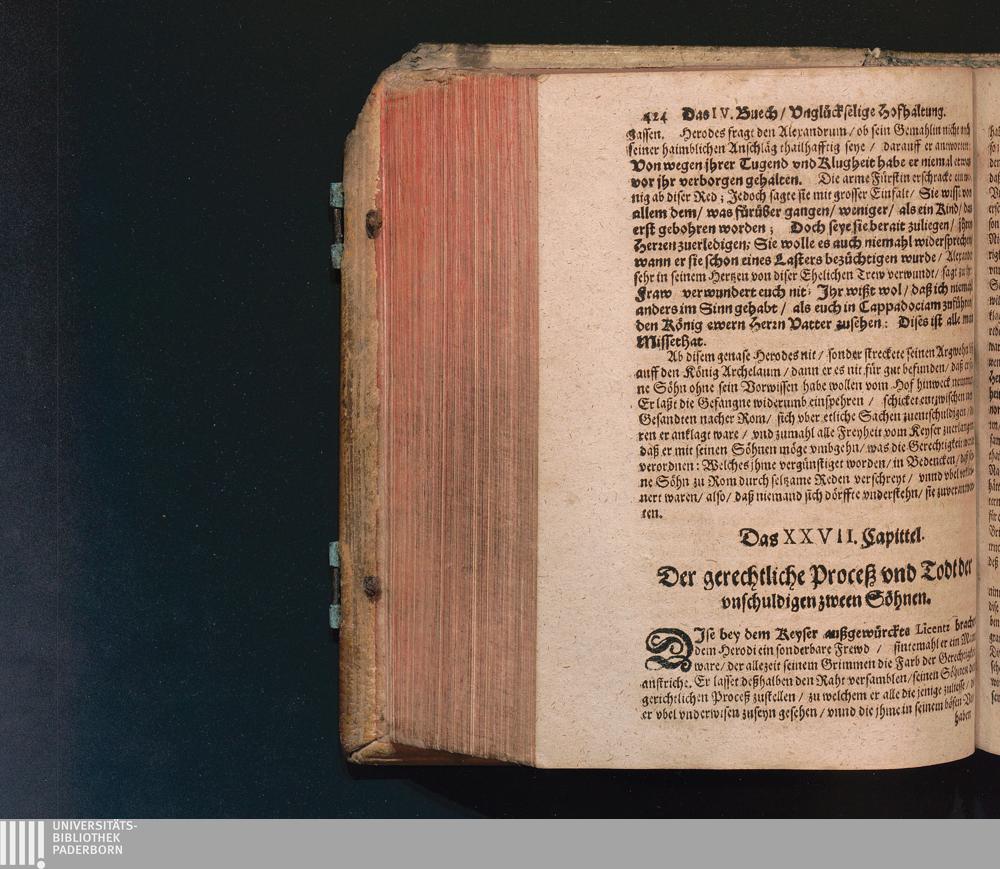 424 Das IV. Buech / Vnglückselige Hofhaltung.
gassen. Herodes fragt den Alexandrum / ob sein Gemahlin nicht
seiner haimblichen Anschläg thailhafftig seye / darauff er antwortet:
Von wegen jhrer Tugend vnd Klugheit habe er niemal etwas
vor jhr verborgen gehalten. Die arme Fürstin erschracke ein we-
nig ab diser Red; Jedoch sagte sie mit grosser Einfalt / Sie wisse von
allem dem / was fürüber gangen / weniger / als ein Kind / das
erst gebohren worden; Doch seye sie berait zuliegen / jhren
Herren zuerledigen; Sie wolle es auch niemahl widersprechen
wann er sie schon eines Lasters bezüchtigen wurde / Alexander
sehr in seinem Hertzen von diser Ehelichen Trew verwundt / sagt zu jhr
Fraw verwundert euch nit: Jhr wißt wol / daß ich niemal
anders im Sinn gehabt / als euch in Cappadociam zuführen
den König ewern Herrn Vatter zusehen: Dises ist alle mein
Missethat.
Ab disem genase Herodes nit / sonder streckete seinen Argwohn
auff den König Archelaum / dann er es nit für gut befunden / daß er
ne Söhn ohne sein Vorwissen habe wollen vom Hof hinweck nemmen
Er laßt die Gefangne widerumb einspehren / schicket entzwischen
Gesandten nacher Rom / sich vber etliche Sachen zuentschuldigen /
ren er anklagt ware / vnd zumahl alle Freyheit vom Keyser zuerlangen
daß er mit seinen Söhnen möge vmbgehn / was die Gerechtigkeit
verordnen: Welches jhme vergünstiget worden / in Bedencken / daß
ne Söhn zu Rom durch seltzame Reden verschreyt / vnnd vbel
nert waren / also / daß niemand sich dörffte vnderstehn / sie zuverantwor-
ten.
Das XXVII. Capittel.
Der gerechtliche Proceß vnd Todt der
vnschuldigen zween Söhnen.
DIse bey dem Keyser außgewürckte Licentz brachte
dem Herodi ein sonderbare Frewd / sintemahl er ein Mann
ware / der allezeit seinem Grimmen die Farb der Gerechtigkeit
anstriche. Er lasset deßhalben den Raht versamblen / seinen Söhnen
gerichtlichen Proceß zustellen / zu welchem er alle die jenige zuliesse /
er vbel vnderwisen zuseyn gesehen / vnnd die jhme in seinem bösen
haben
UNIVERSITÄTS-
BIBLIOTHEK
PADERBORN